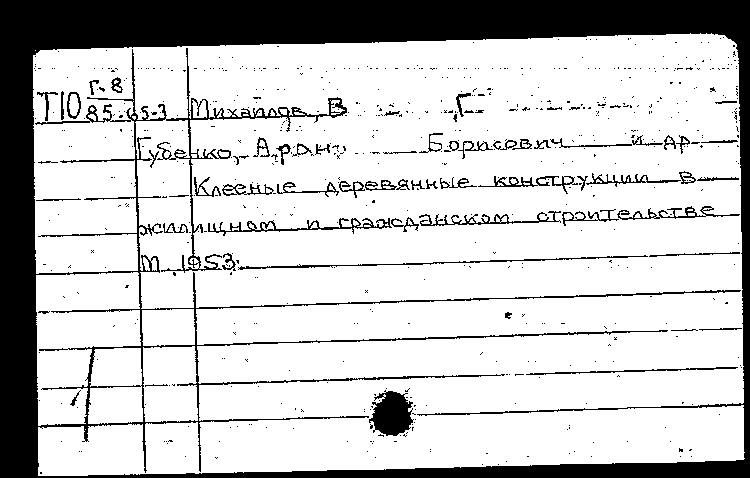 Т10 Г-8
85-65-3 Михайлов, В , Г
Губенко, Арон Борисович и др.
Клееные деревянные конструкции в
жилищном и гражданском строительстве
М. 1953.
1